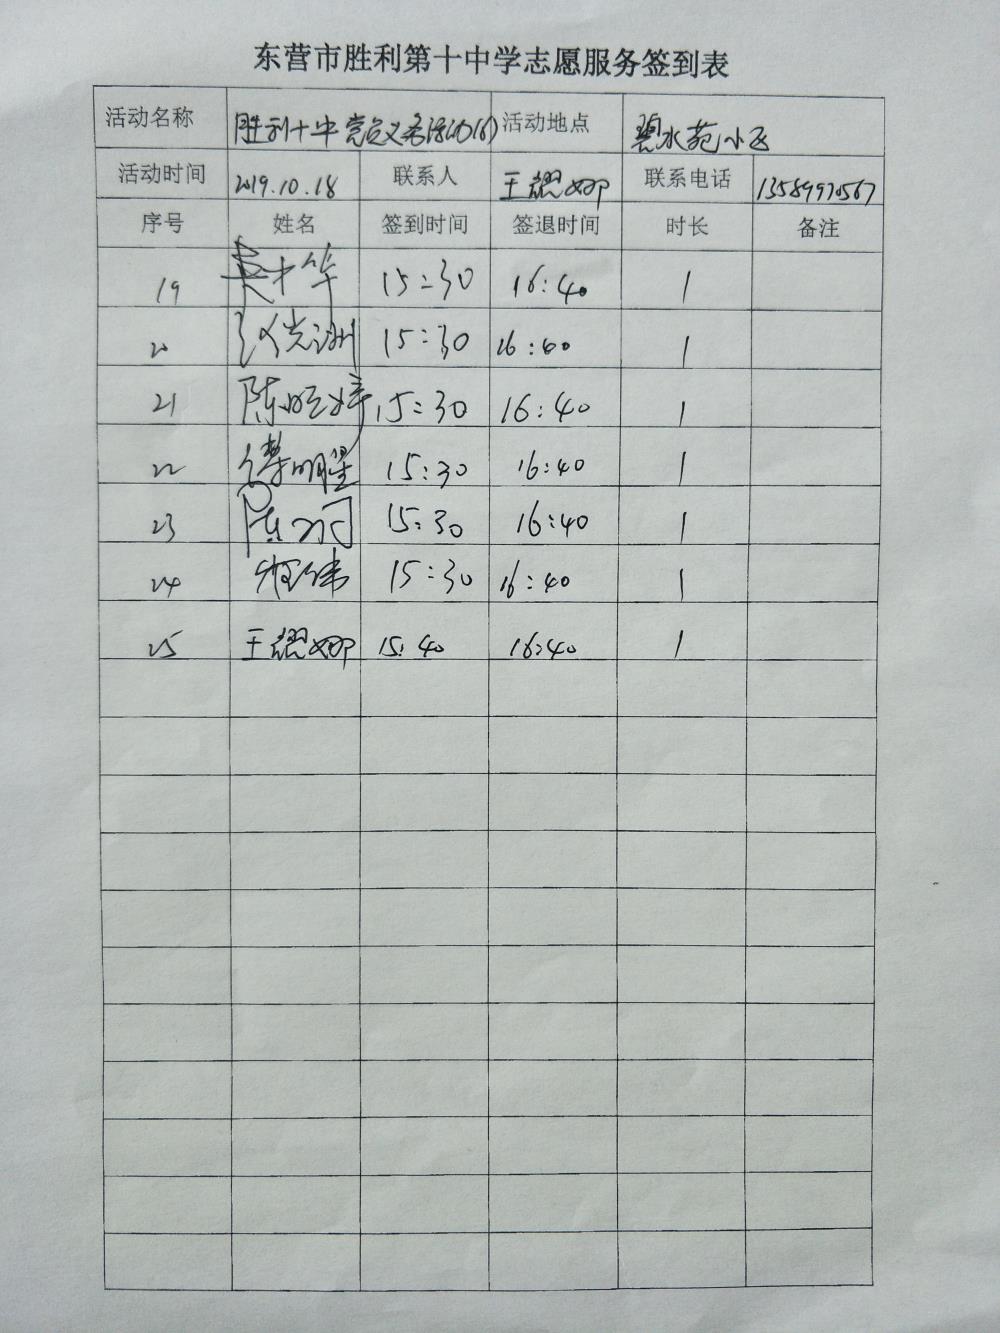 东营市胜利第十中学志愿服务签到表
活动名称 胜利十中党员义务活动(6) 活动地点 碧水苑小区
活动时间 2019.10.18 联系人 王翠娜 联系电话 13589970567
序号 姓名 签到时间 签退时间 时长 备注
19 吴才华 15:30 16:40 1
20 15:30 16:40 1
21 15:30 16:40 1
22 15:30 16:40 1
23 15:30 16:40 1
24 15:30 16:40 1
25 王翠娜 15:40 16:40 1